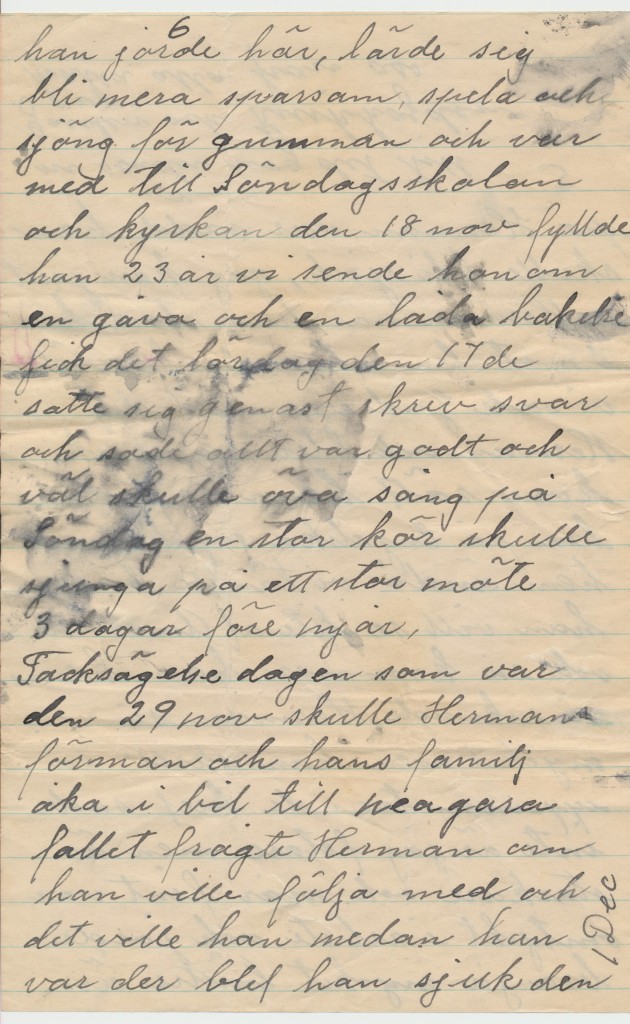 6
han jorde här, lärde sig
bli mera sparsam, spela och
sjöng för gumman och var
med till Söndagsskolan
och kyrkan den 18 nov fyllde
han 23 år vi sende honom
en gåva och en låda bakelse
fick det lördag den 17 de
satte sig genast skrev svar
och sade allt var godt och
väl skulle öva sång på
Söndag en stor kör skulle
sjunga på ett stor möte
3 dagar före nyår,
Tacksägelse dagen som var
den 29 nov skulle Herman
förman och hans familj
åka i bil till neagara
fallet frågte Herman om
han ville följa med och
det ville han medan han
var der blef han sjuk den
1 Dec